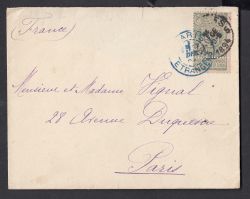 (France)
Monsieur et Madame Vignal
28 Avenue Duquesne
Paris
ETRANGER
1894